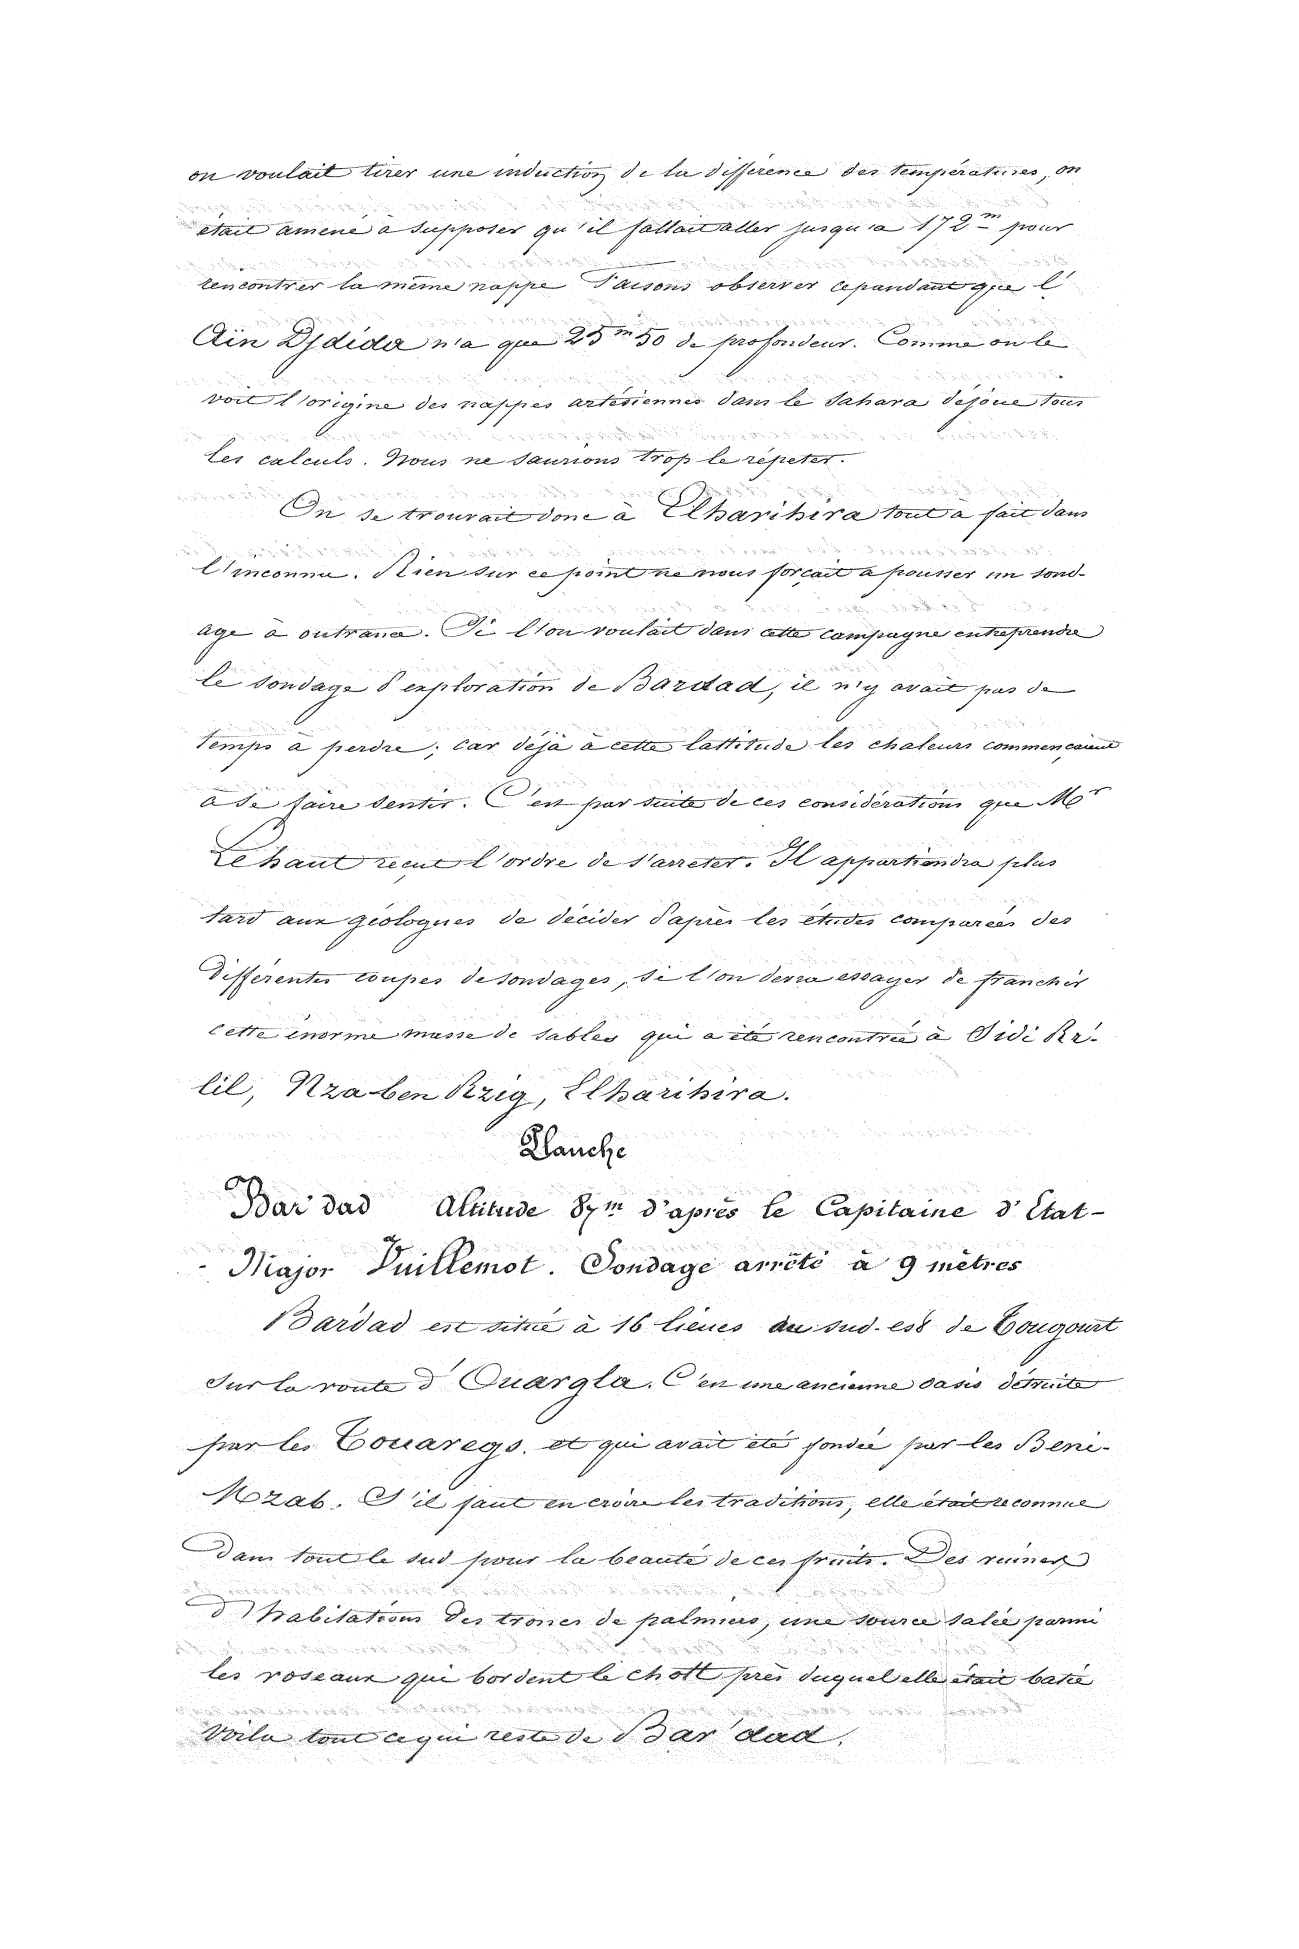 on voulait tirer une induction de la différence des températures, on
était amené à supposer qu'il fallait aller jusqu'a 172m pour
rencontrer la même nappe Faisons observer cependant que l'
Aïn Djdida n'a que 25m50 de profondeur. Comme on le
voit l'origine des nappes artésiennes dans le Sahara déjoue tous
les calculs. Nous ne saurions trop le répeter.
On se trouvait donc à Elharihira tout à fait dans
l'inconnu. Rien sur ce point ne nous forçait a pousser un sond-
age à outrance. Si l'on voulait dans cette campagne entreprendre
le sondage d'exploration de Bardad, il n'y avait pas de
temps à perdre; car déjà à cette lattitude les chaleurs commençaient
à se faire sentir. C'est par suite de ces considérations que Mr
Lehaut reçut l'ordre de s'arreter. Il appartiendra plus
tard aux géologues de décider d'après les études comparées des
différentes coupes de sondages, si l'on devra essayer de franchir
cette énorme masse de sables qui a été rencontrée à Sidi Ré-
lil, Nza-ben Rzig, Elharihira.
Planche
Bar'dad Altitude 87m d'après le Capitaine d'Etat-
- Major Vuillemot. Sondage arrêté à 9 mètres
Bar'dad est situé à 16 lieues au sud-est de Tougourt
sur la route d'Ouargla. C'est une ancienne oasis détruite
par les Touaregs. et qui avait été fondée par les Beni-
Mzab. S'il faut en croire les traditions, elle était reconnue
dans tout le sud pour la beauté de ces fruits. Des ruines
d'habitations des troncs de palmiers, une source salée parmi
les roseaux qui bordent le chott près duquel elle était batie
voila tout ce qui reste de Bar'dad.